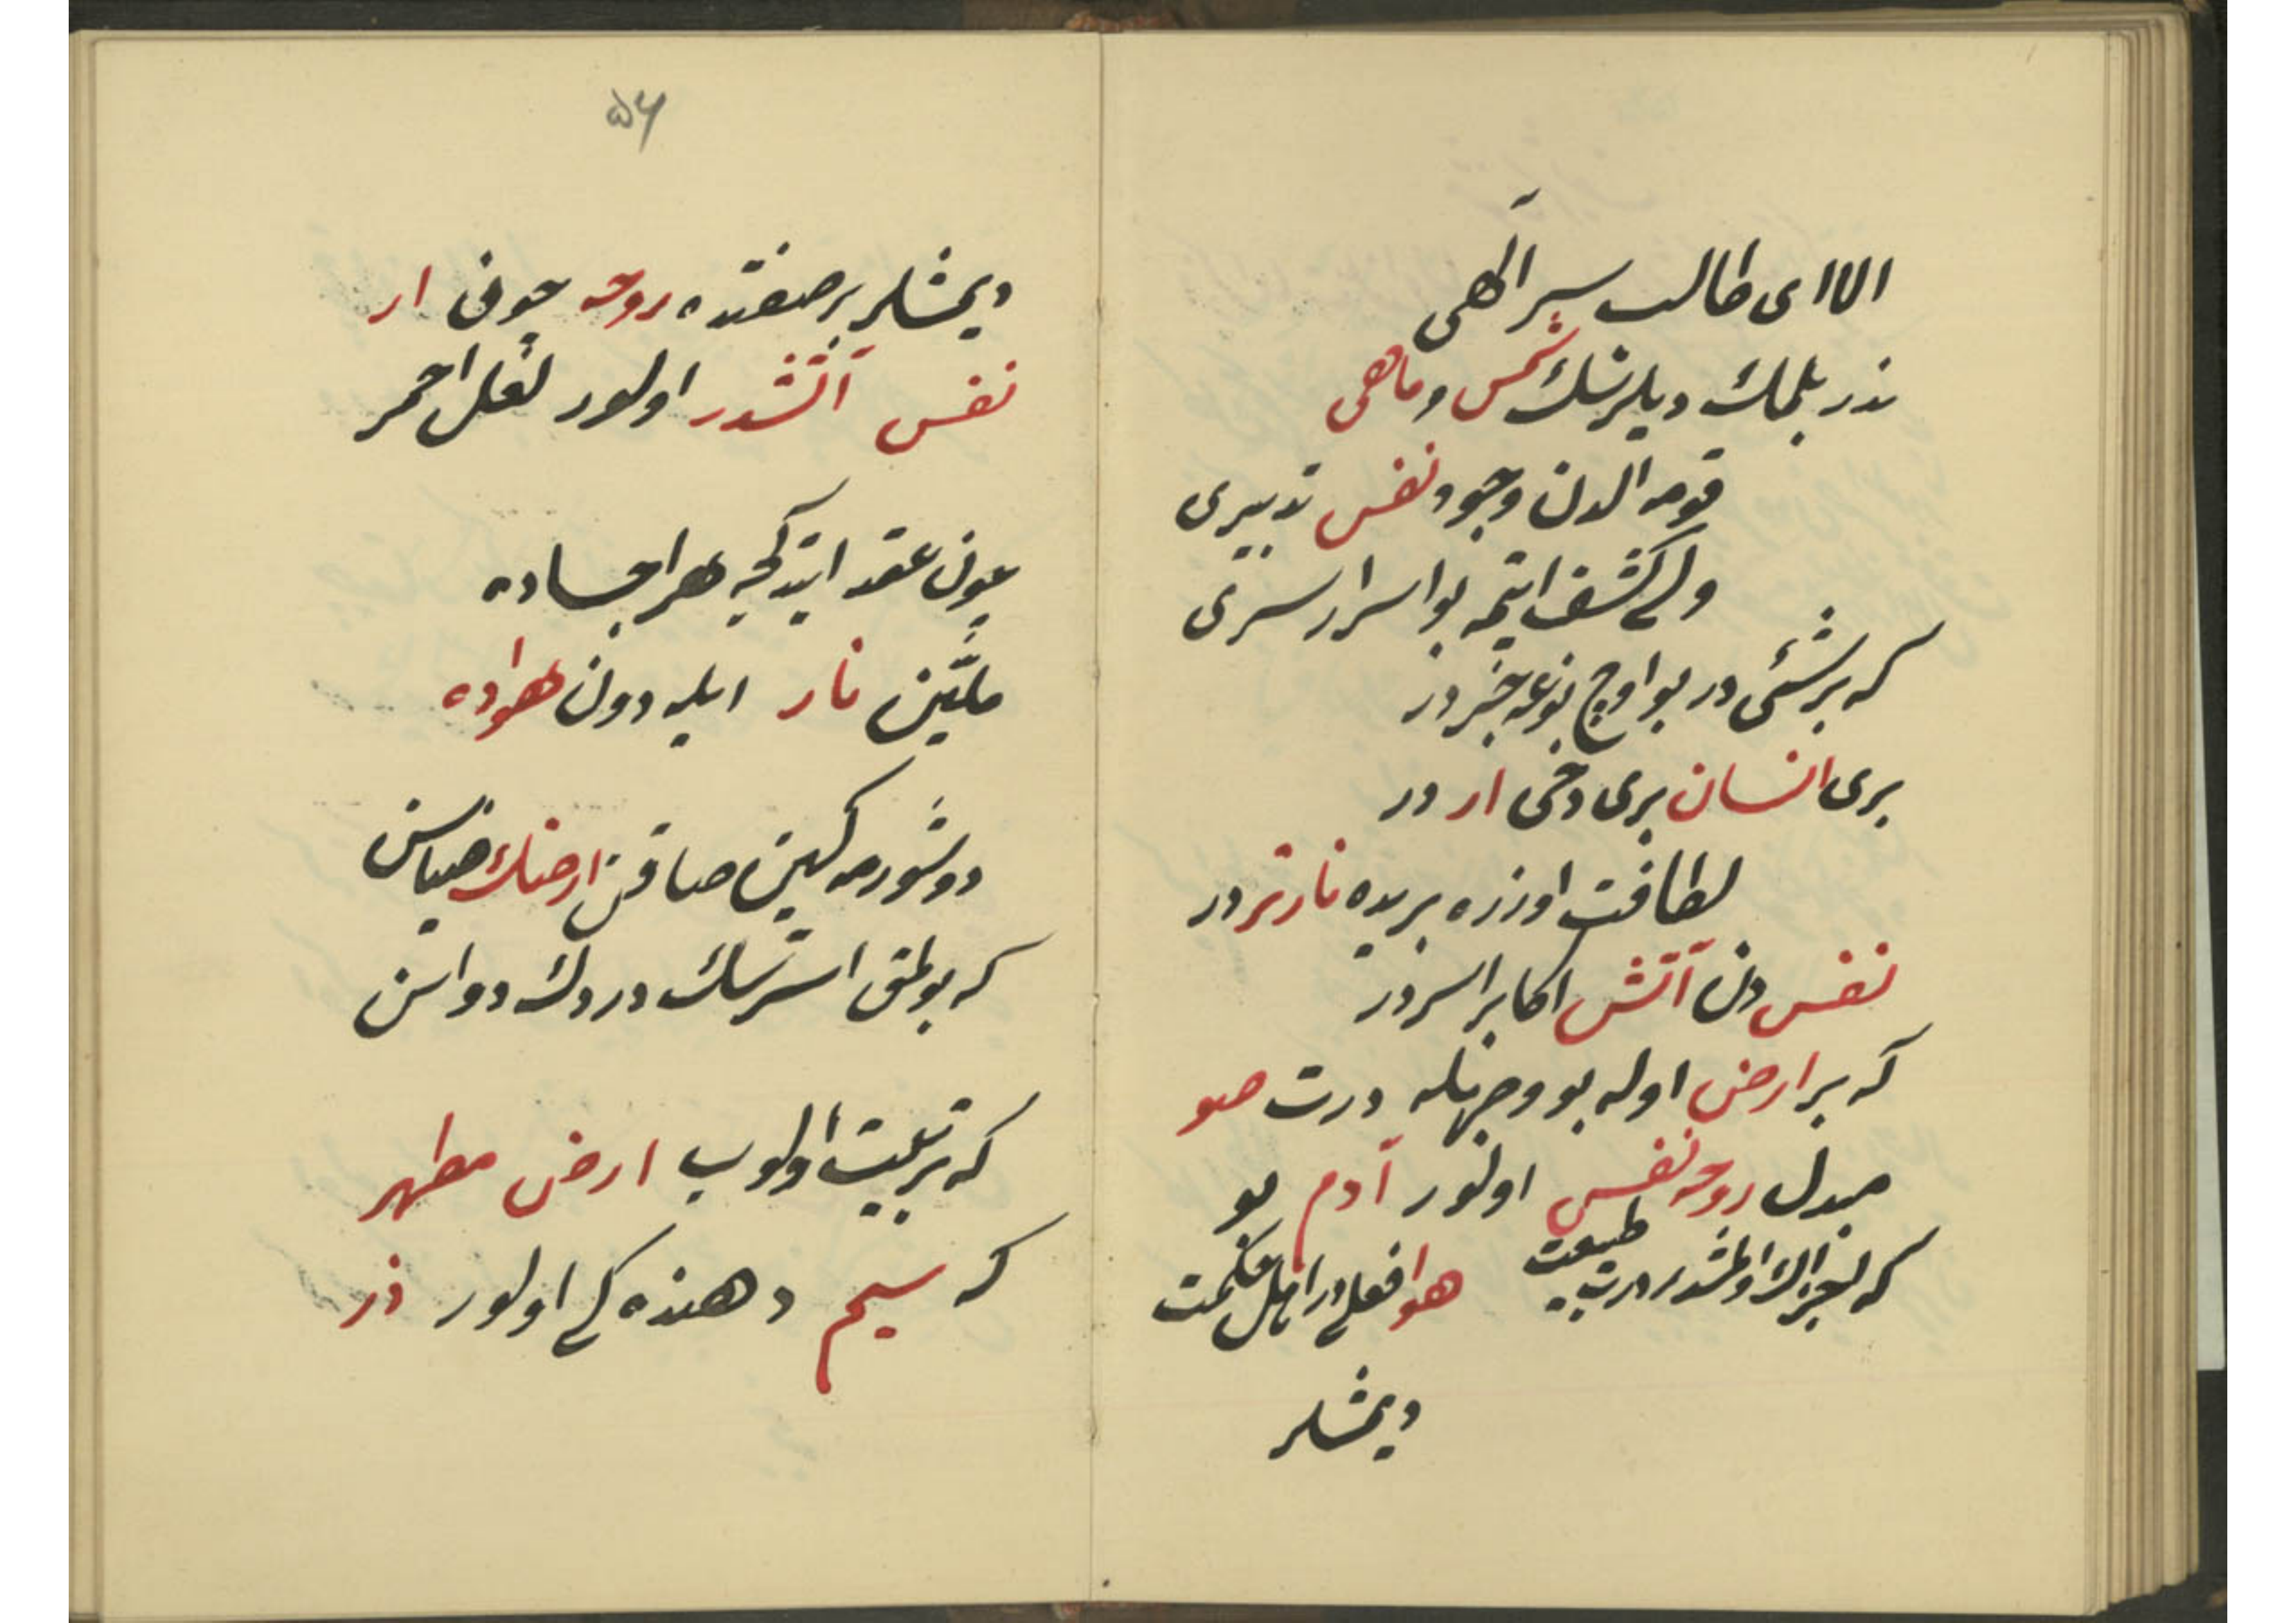 الا ای طالب سر الهی
ندر بلمك ديلرسك شمس و ماهی
قومه الدن وجود نفس تدبيری
ولی كشف ايتمه بو اسرار سری
كه بر شئی در بو اوج نوعه خبر در
بری انسان بری دخی ار در
لطافت اوزره بريده نارتر در
نفس دن آتش اكابر اسردر
كه بر ارض اوله بو وجهله درت صو
مبدل روحه نفس اولنور آدم بو
كه طبيعت هوا فعلی در اهل حكمت
ديمشلر
۵۴
ديمشلر بر صفتده روحه چون ار
نفس آتشدر اولور لعل احمر
عون عقد ايتدكجه هر اجساده
ملين نار ايله دون هواده
دوشورمه كهين صاقن ارضك ضياسن
كه بولمق استرسك دردك دواسن
كه تربيت اولوب ارض مطهر
كه سيم دهنده كی اولور زر